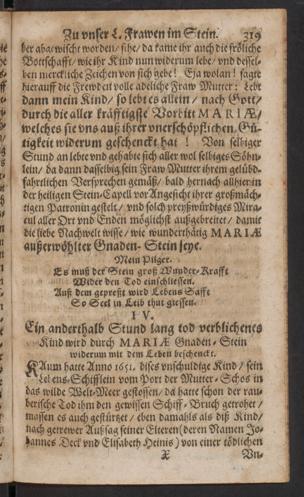 Zu vnser L. Frawen im Stein. 319
ber aba/wischt worden/ sihe/ da kame ihr auch die fröliche
Bottschafft/ wie ihr Kind nun widerum lebe/ vnd desselben
merckliche Zeichen von sich gebe! Eja wolan! sagte
hierauff die Frewdenvolle adeliche Fraw Mutter: Lebt
dann mein Kind/ so lebt es allein/ nach Gott/
durch die aller kräfftigste Vorbitt MARIÆ,
welches sie vns auß ihrer vnerschöpflichen Gü-
tigkeit widerum geschenckt hat! Von selbiger
Stund an lebte vnd gehabte sich aller wol selbiges Söhn-
lein/ da dann dasselbig sein Fraw Mutter ihrem gelübd-
fahrtlichen Versprechen gemäß/ bald hernach allhier in
der heiligen Stein-Capell vor Angesicht ihrer großmäch-
tigen Patronin gestelt/ vnd solch preyßwürdiges Mira-
cul aller Ort vnd Enden möglichst außgebreitet/ damit
die liebe Nachwelt wisse/ wie wunderthätig MARIÆ
außerwöhlter Gnaden-Stein seye.
Mein Pilger.
Es muß der Stein groß Wunder-Krafft
Wider den Tod einschliessen.
Auß dem gepreßt wird Lebens Safft
So Seel in Leib thut giessen.
IV.
Ein anderthalb Stund lang tod verblichenes
Kind wird durch MARIÆ Gnaden-Stein
widerum mit dem Leben beschenckt.
KAum hatte Anno 1651. dises vnschuldige Kind/ sein
Lebens-Schifflein vom Port der Mutter-Schos in
das wilde Welt-Meer gestossen/ da hatte schon der rau-
berische Tod ihm den gewissen Schiff-Bruch getrohet/
massen es auch gestürtzet/ eben damahls als diß Kind/
nach getrewer Aussag seiner Elteren (deren Namen Jo-
hannes Deck vnd Elisabeth Heinis) von einer tödlichen
X Vn-